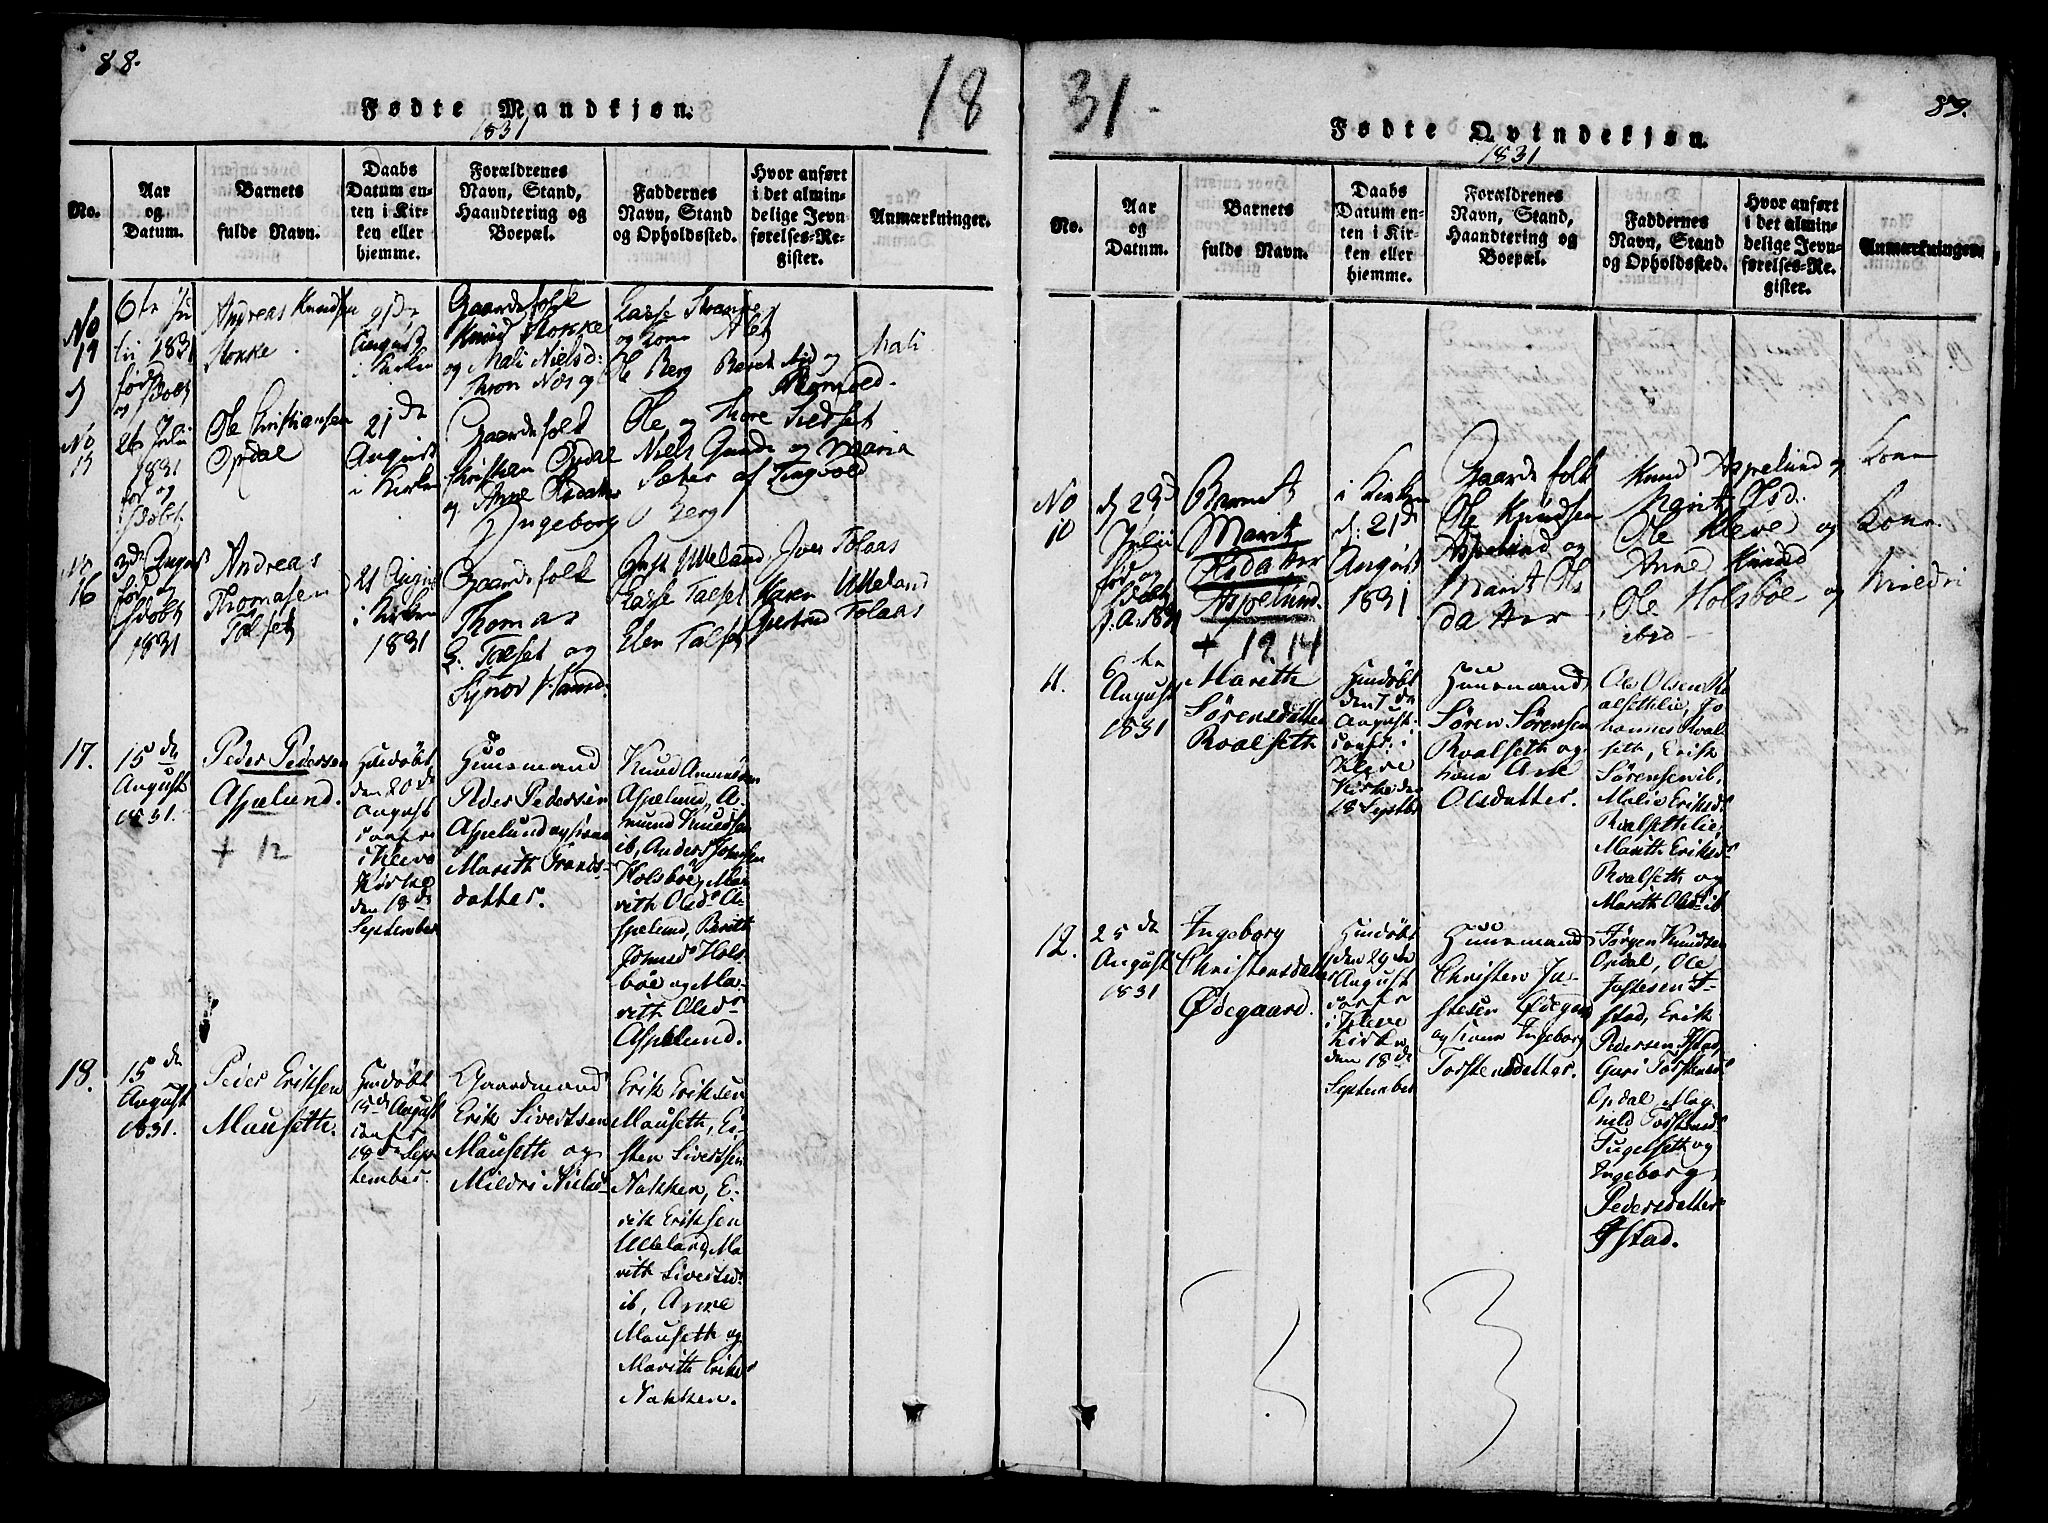 88.
18
Fødte Mandkjøn.
1831
No.
Aar
og
Datum.
Barnets
fulde Navn.
Daabs
Datum en-
ten i Kir-
ken eller
hjemme.
Forældrenes
Navn, Stand,
Haandtering og
Boepæl.
Faddernes
Navn, Stand
og Opholdssted.
Hvor anført
i det almin-
delige Jevn-
førelses-Re-
gister.
Anmærkninger.
No
14
6te Ju
lii 1831
fød
og
Andreas Knudsen
Stokke
August
i Kirken
Gaardefolk
Knud Stokke
og Mali Nielsd:
Lasse
og Kone
Ole Berg Berit
og
Mali
No
15
26 Julii
1831
fød og
døbt
Ole Christiansen
Opdal
21de
August
i Kirken
Gaardefolk
Christian Opdal
og Anne Olsdatter
Ole og Thore
Niels Gunde og Maria
Sæter af Tingvold
Ingeborg Berg
No
16
3de August
fød og
døbt
1831
Andreas
Thomasen
Talset
21 August
i Kirken
1831
Gaardefolk
Thomas
E. Talset og
Synov
Utteland
Lasse Talset
Elen Talset
Iver Tolaas
Karen Utteland
Gjertrud Tolaas
17.
15de
August
1831.
Peder Pedersen
Aspelund.
+ 12
Hiudøbt
den 20de
August
confr
i Kleve
Kirke
den 18de
September
Huusmand
Peder Pedersen
Aspelund og kone
Marith Frants-
datter.
Knud Amundsen
Aspelund, A-
mund Knudsen
ib, Anders Johnsen
Holsbøe, Ma-
rith Olsdr A-
spelund, Berith
Johnsdr Hols-
bøe og Ma-
rith Olsdr
Aspelund.
18.
15de
August
1831.
Peder Eriksen
Mauseth.
Hiudøbt
15de August
confr
18de Sep-
tember.
Gaardmand
Erik Sivertsen
Mauseth og
Mildri Nielsd-
Erik Eriksen
Mauseth, Ei-
sten Sivertsen
Nakken, E-
rik Eriksen
Utteland, Ma
rith Sivertsd:
ib, Anne
Mauseth og
Marith Eriksd
Nakken.
89.
31.
Fødte Qvindekjøn.
1831
No.
Aar
og
Datum.
Barnets
fulde Navn.
Daabs
Datum en-
ten i Kir-
ken eller
hjemme.
Forældrenes
Navn, Stand,
Haandtering og
Boepæl.
Faddernes
Navn, Stand
og Opholdssted.
Hvor anført
i det almin-
delige Jevn-
førelses-Re-
gister.
Anmærkninger
No
10
d. 23d
Julii
fød og
døbt
Barnet
Marit
Olsdatter
Aspelund.
+ 12.14
i Kirken
d. 21de
August
1831
Gaardefolk
Ole Knudsen
Aspelund og
Marit Ols
datter
Knud Aspelund og Kone
Marit Olsd.
Ole Kleve og Kone
Anne Knud
Ole Holsbøe og Mildri
ibid
11.
6te
August
1831
Mareth
Sørensdatter
Rvalseth
Hiudøbt
den 7de
August.
confr. i
Kleve
Kirke den
18 Septbr
Huusmand
Søren Sørensen
Rvalseth og
kone Ane
Olsdatter.
Ole Olsen Rv
alsethlie, Jo
hannes Rval
seth, Erik
Sørensen ib.
Mali Eriksdr
Rvalsethlie,
Marith Eriksdr
Rvalseth og
Marith Olsdr ib
12.
25de
August
1831
Ingeborg
Christensdatter
Ødegaard.
Hiudøbt
den 29de
August
confr
i Kleve
Kirke
den 18de
September
Huusmand
Christen Jo-
stesen Ødegaard
og kone Ingeborg
Torstensdatter.
Jørgen Knudsen
Opdal, Ole
Jostesen I-
stad, Erik
Pedersen Istad,
Guri Torstensdr
Opdal, Mag
nild Torstensdr
Fugelseth og
Ingeborg
Pedersdatter
Istad.